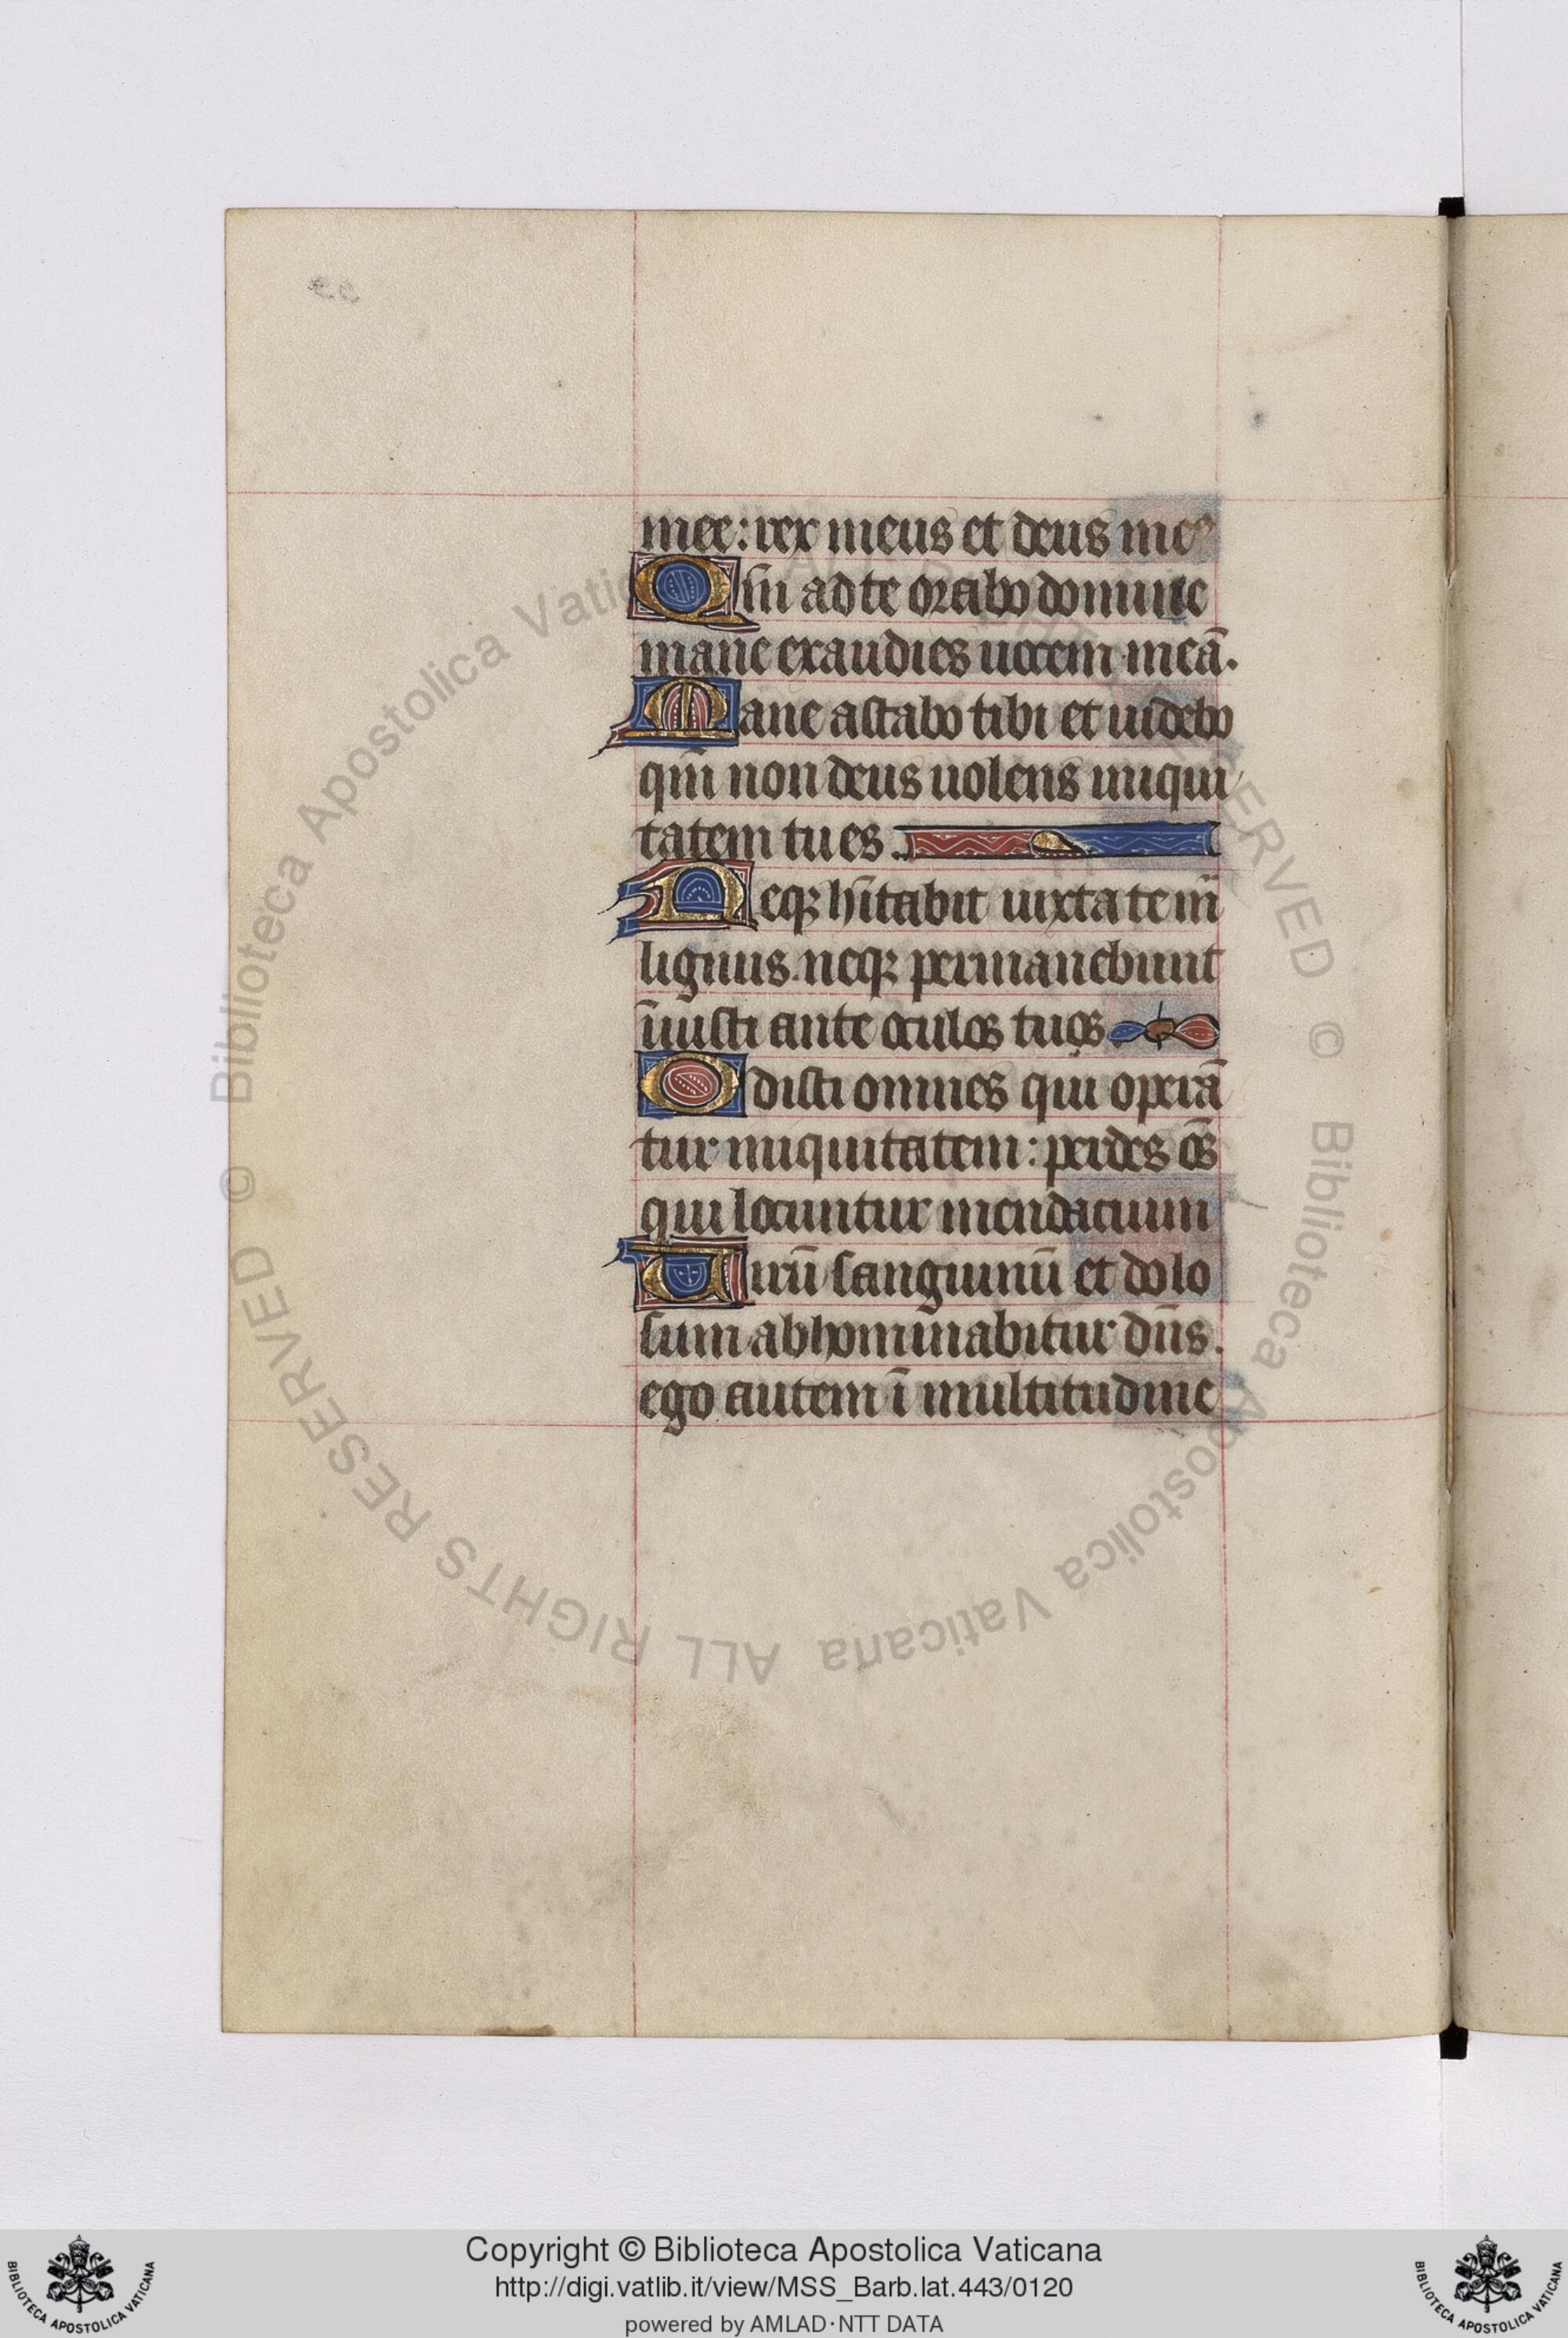 mee: rex meus et deus meꝰ
Qm̄ ad te orabo domine
mane exaudies uocem meā.
Mane astabo tibi et uidebo
qm̄ non deus uolens iniqui
tatem tu es.
Neqꝫ hītabit iuxta te m̄
lignus. neqꝫ permanebunt
īiusti ante oculos tuos
Odisti omnes qui operā
tur iniquitatem: perdes oēs
qui locuntur mendacium
Uirū sanguinū et dolo
sum abhominabitur dn̄s.
ego autem ī multitudine
© Biblioteca Apostolica Vaticana ALL RIGHTS RESERVED © Biblioteca Apostolica Vaticana ALL RIGHTS RESERVED
Copyright © Biblioteca Apostolica Vaticana
http://digi.vatlib.it/view/MSS_Barb.lat.443/0120
powered by AMLAD·NTT DATA
BIBLIOTECA APOSTOLICA VATICANA
BIBLIOTECA APOSTOLICA VATICANA